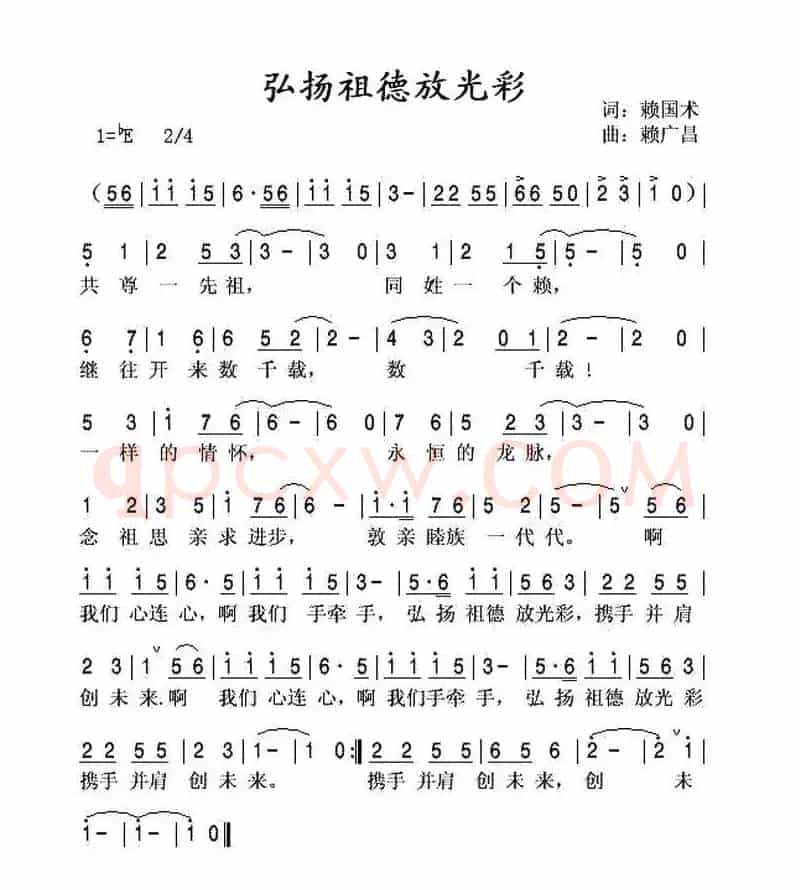 弘扬祖德放光彩
词：赖国术
1=♭E 2/4 曲：赖广昌
（56|i i i5|6·56|i i i5|3-|22 55|66 50|2 3|i 0）|
5 1|2 53|3-|3 0|3 1|2 15|5-|5 0|
共尊一先祖， 同姓一个赖，
6 7|1 6|6 52|2-|2-|4 32|2 01|2-|2 0|
继往开来数千载， 数 千载！
5 3|i 76|6-|6 0|7 6|5 23|3-|3 0|
一样的情怀， 永恒的龙脉，
qpcxw.com
1 2|3 5|i 76|6-|i·i 76|5 2|5-|5ˇ 56|
念祖思亲求进步， 敦亲睦族一代代。 啊
i i i5|6·5|i i i5|3-|5·6 i i|5 63|22 55|
我们心连心，啊我们手牵手，弘扬祖德放光彩，携手并肩
2 3|iˇ 56|i i i5|6·5|i i i5|3-|5·6 i i|5 65|
创未来.啊 我们心连心，啊我们手牵手，弘扬祖德放光彩
22 55|2 3|i-|i 0:‖22 55|65 6|2-|2ˇ i|
携手并肩创未来。 携手并肩创未来，创 未
i-|i-|i 0‖